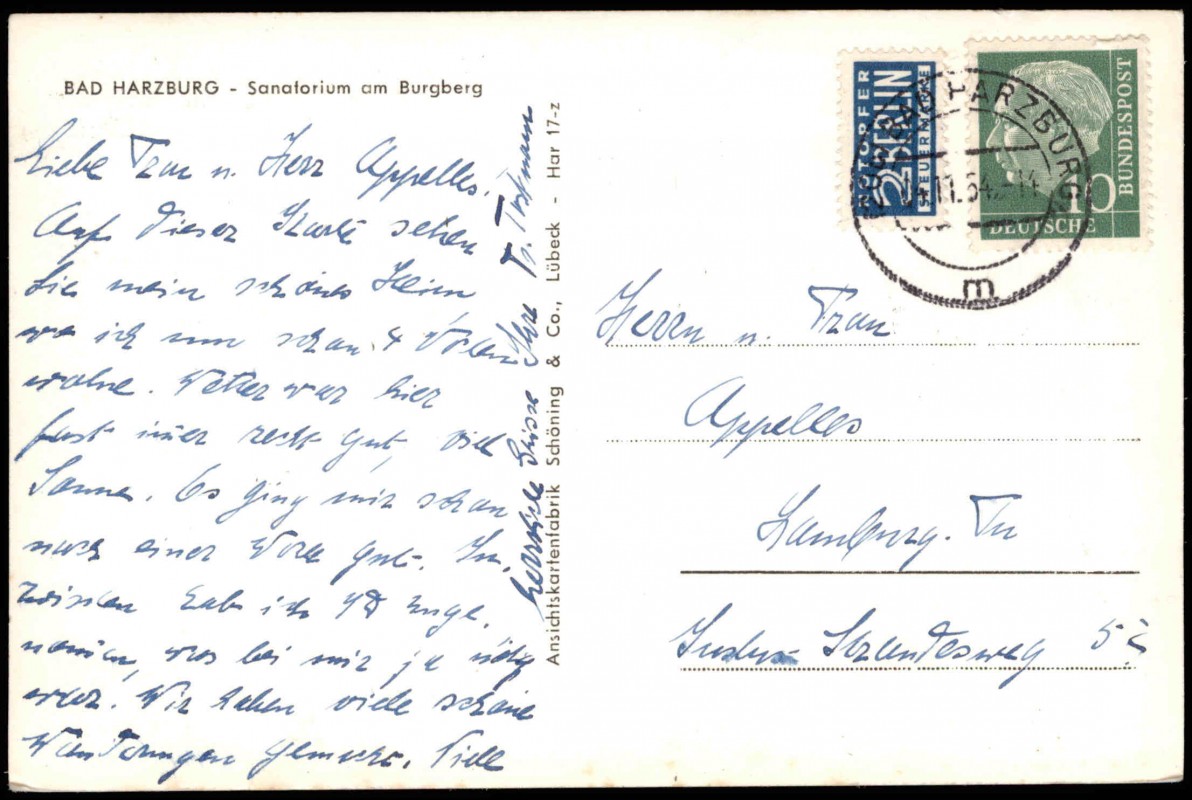 BAD HARZBURG - Sanatorium am Burgberg
Liebe Frau u. Herr Appelles.
Auf dieser Karte sehen
Sie mein schönes Heim
wo ich nun schon 4 Wochen
wohne. Wetter war hier
fast immer recht gut, viel
Sonne. Es ging mir schon
nach einer Woche gut. In-
zwischen habe ich 4 ℔ zuge-
nommen, was bei mir ja nötig
war. Wir haben viele schöne
Wanderungen gemacht. Viele
herzliche Grüsse Ihre Tr.
Ansichtskartenfabrik Schöning & Co., Lübeck - Har 17-z
NOTOPFER
2 BERLIN
STEUERMARKE
DEUTSCHE
BUNDESPOST
10
BAD HARZBURG
11.54.-14
m
Herrn u. Frau
Appelles
Hamburg. Fu
Strandesweg 52